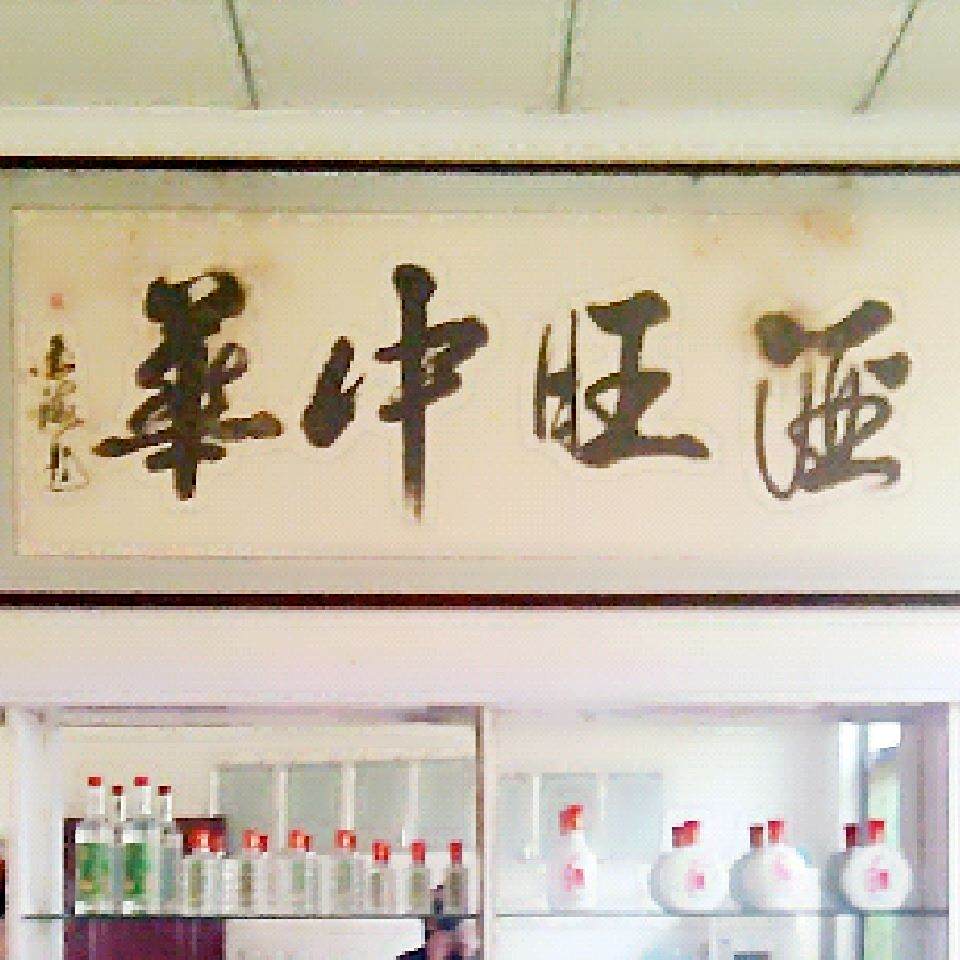 酒旺中華